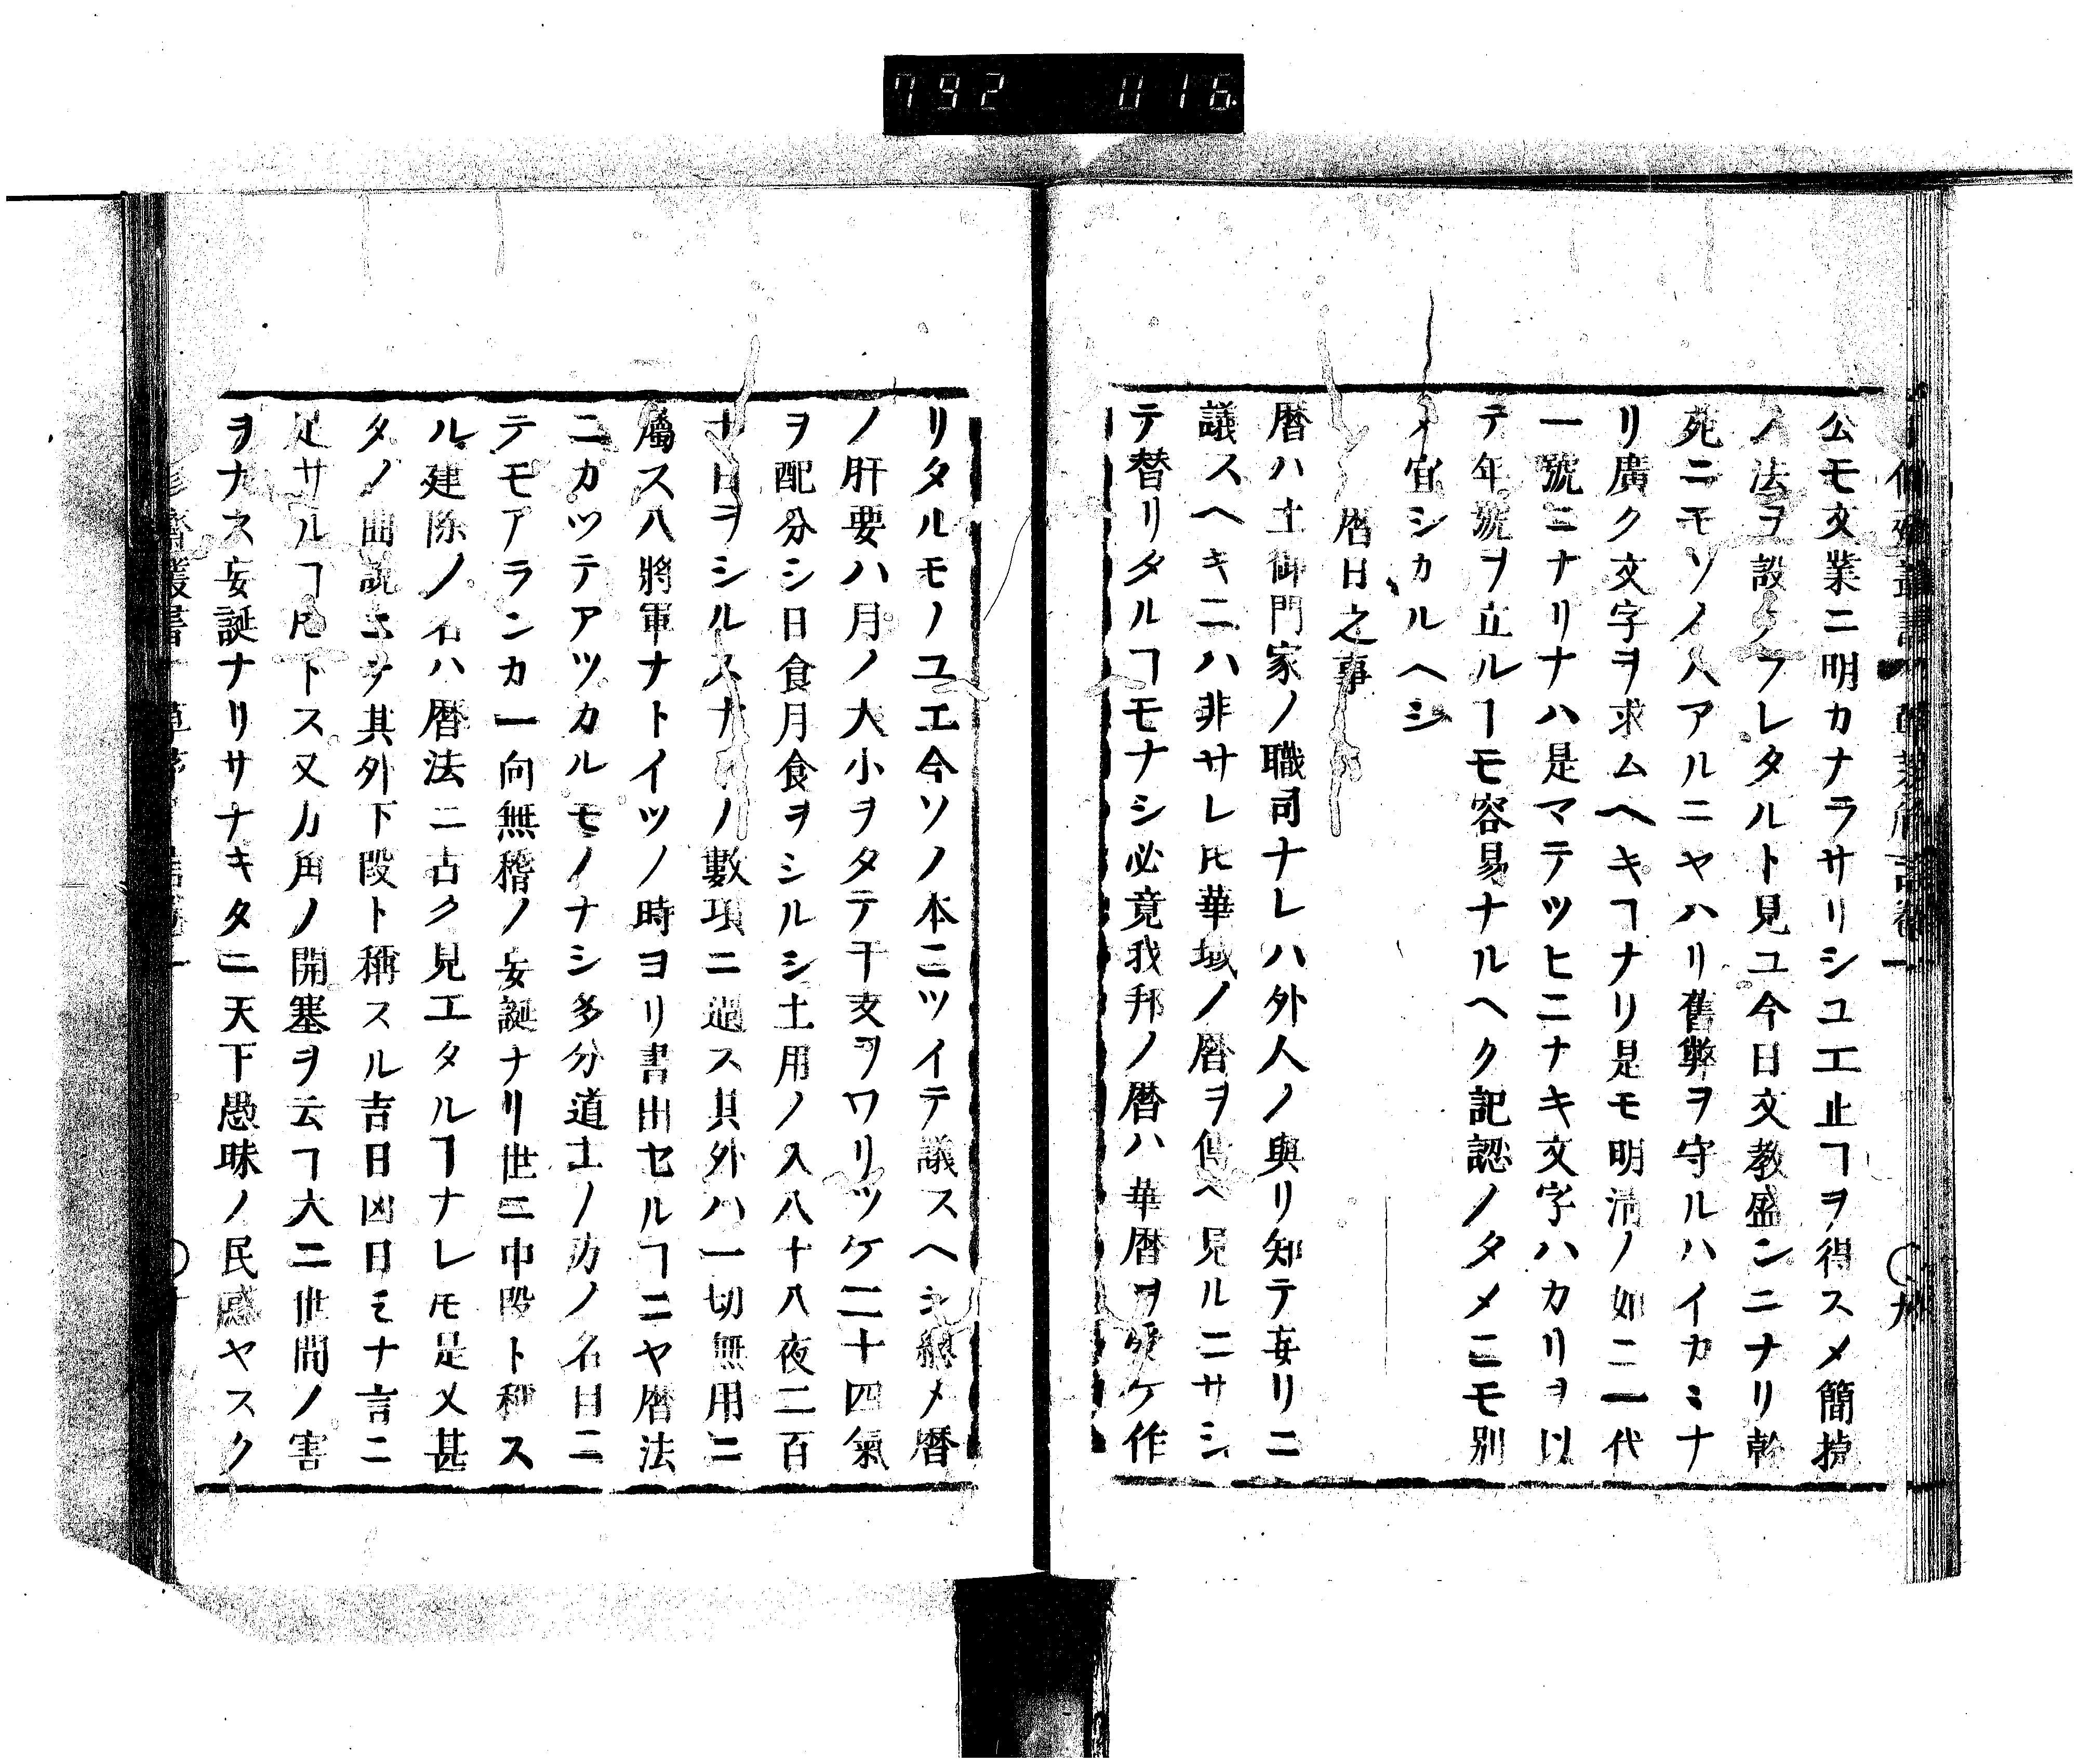 792 016
公モ文業ニ明カナラサリシユエ止ヿヲ得スメ簡捷
ノ法ヲ設ケラレタルト見ユ今日文教盛ンニナリ幹
死ニモソノ人アルニヤハリ舊弊ヲ守ルハイカミナ
リ廣ク文字ヲ求ムヘキヿナリ是モ明清ノ如ニ一代
一號ニナリナハ是マテツヒニナキ文字ハカリヲ以
テ年號ヲ立ルヿモ容易ナルヘク記認ノタメニモ別
メ宜シカルヘシ
暦日之事
暦ハ土御門家ノ職司ナレハ外人ノ與リ知テ妄リニ
議スヘキニハ非サレ𪜈華域ノ暦ヲ傳ヘ見ルニサシ
テ替リタルヿモナシ必竟我邦ノ暦ハ華暦ヲ受ケ作
リタルモノユエ今ソノ本ニツイテ議スヘシ總メ暦
ノ肝要ハ月ノ大小ヲタテ干支ヲワリツケ二十四氣
ヲ配分シ日食月食ヲシルシ土用ノ入八十八夜二百
十日ヲシルスナトノ數項ニ過ス其外ハ一切無用ニ
屬ス八將軍ナトイツノ時ヨリ書出セルヿニヤ暦法
ニカツテアツカルモノナシ多分道士ノ方ノ名目ニ
テモアランカ一向無稽ノ妄誕ナリ世ニ中段ト稱ス
ル建除ノ名ハ暦法ニ古ク見エタルヿナレ𪜈是又甚
タノ曲説ニテ其外下段ト稱スル吉日凶日モナ言ニ
足サルヿ𪜈トス又方角ノ開塞ヲ云ヿ大ニ世間ノ害
ヲナス妄誕ナリサナキタニ天下愚昧ノ民惑ヤスク